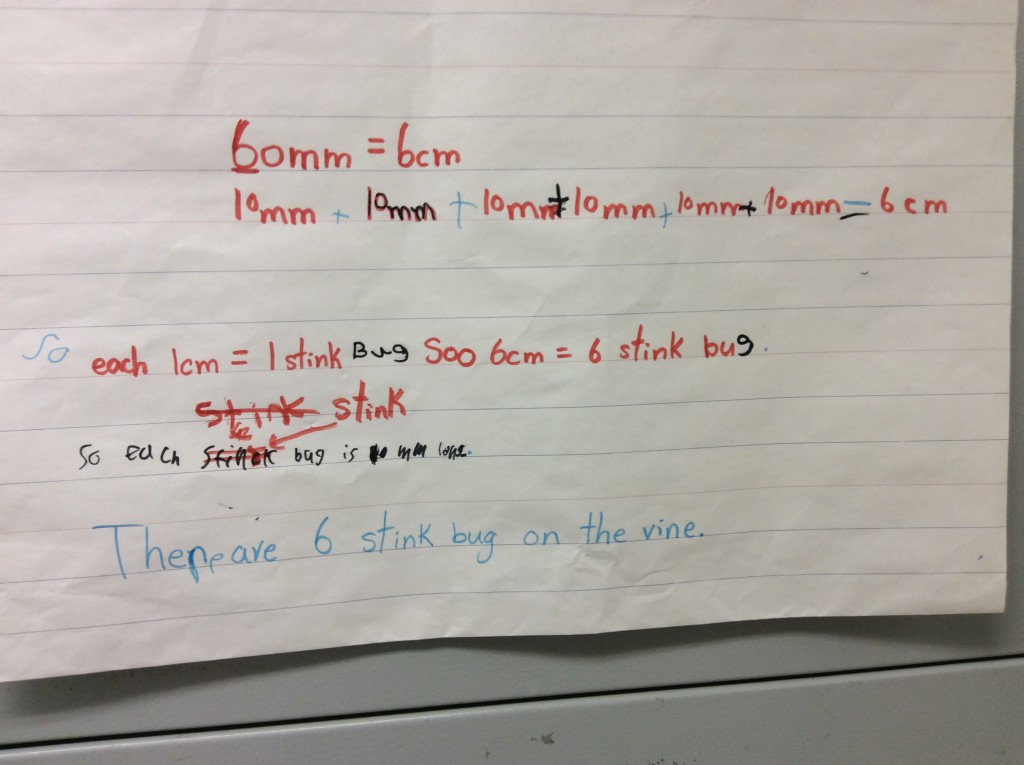 60mm = 6cm
10mm + 10mm + 10mm + 10mm + 10mm + 10mm = 6cm
So each 1cm = 1 stink Bug Soo 6cm = 6 stink bug.
stink stink
So each stinck bug is 10 mm long.
There are 6 stink bug on the vine.